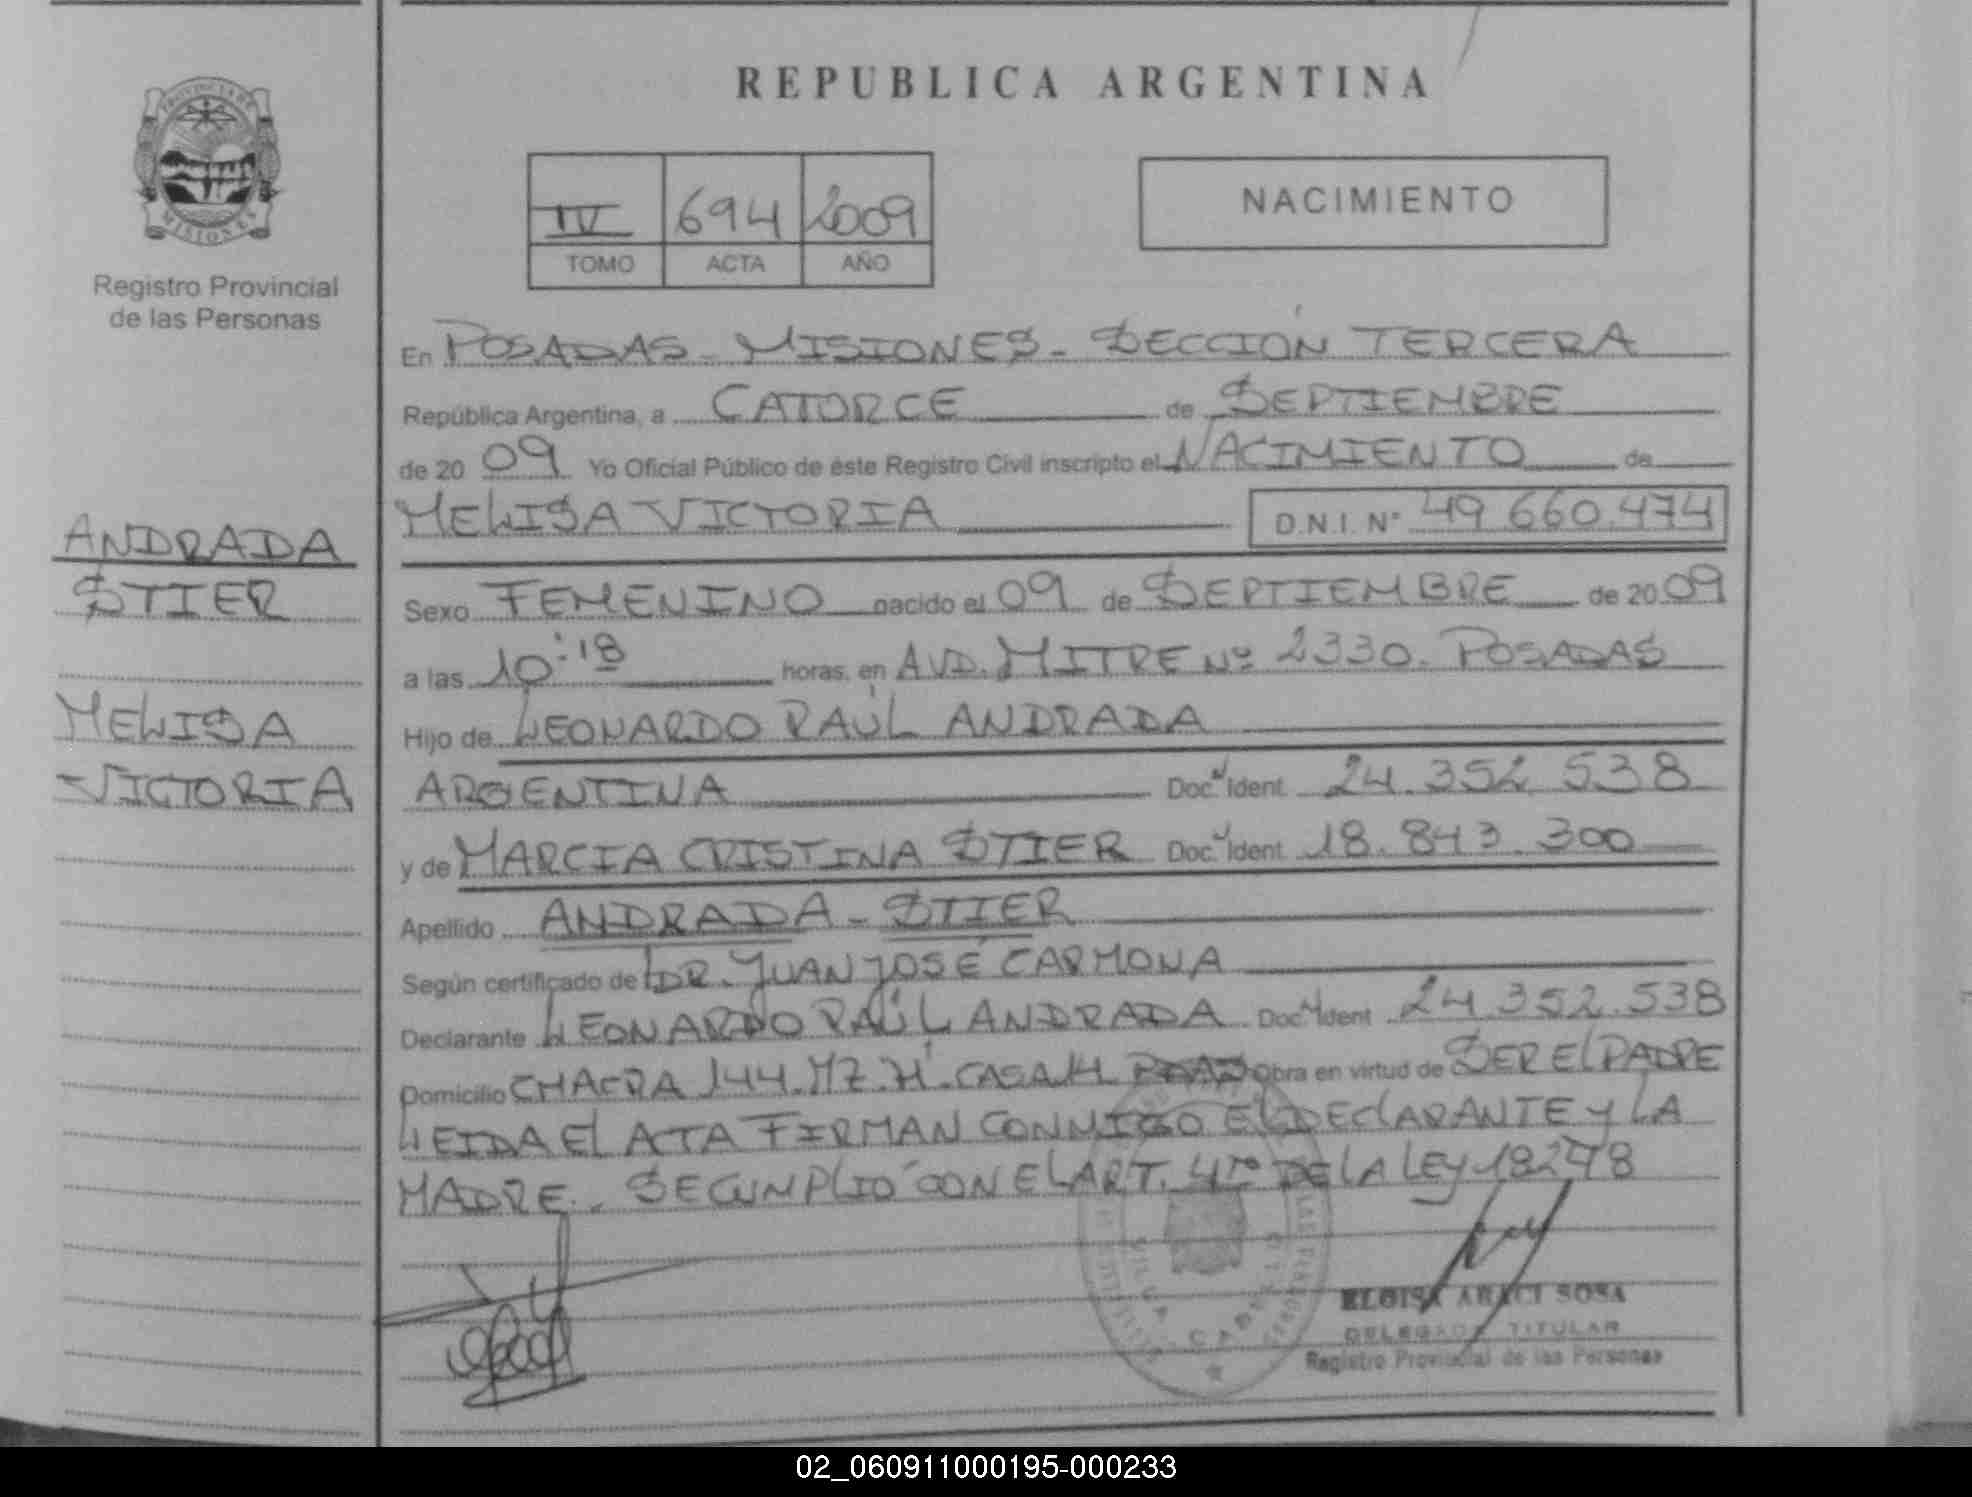 REPUBLICA ARGENTINA
PROVINCIA DE
MISIONES
Registro Provincial
de las Personas
IV 694 2009
TOMO ACTA AÑO
NACIMIENTO
En POSADAS - MISIONES - SECCIÓN TERCERA
República Argentina, a CATORCE de SEPTIEMBRE
de 20 09 Yo Oficial Público de éste Registro Civil inscripto el NACIMIENTO de
MELISA VICTORIA D.N.I. Nº 49.660.474
ANDRADA
STIER
MELISA
VICTORIA
Sexo FEMENINO nacido el 09 de SEPTIEMBRE de 20 09
a las 10:18 horas, en AVD. MITRE Nº 2330. POSADAS
Hijo de LEONARDO RAÚL ANDRADA
ARGENTINA Doc. Ident 24.352.538
y de MARCIA CRISTINA STIER Doc. Ident 18.843.300
Apellido ANDRADA - STIER
Según certificado de DR. JUAN JOSÉ CARMONA
Declarante LEONARDO RAÚL ANDRADA Doc. Ident 24.352.538
Domicilio CHACRA 144. MZ. H. CASA 14 Obra en virtud de SER EL PADRE
LEIDA EL ACTA FIRMAN CONMIGO EL DECLARANTE Y LA
MADRE. SE CUMPLIÓ CON EL ART. 4to DE LA LEY 18248
VILLA CABELLO
ELOISA ARACI SOSA
DELEGADA TITULAR
Registro Provincial de las Personas
02_060911000195-000233